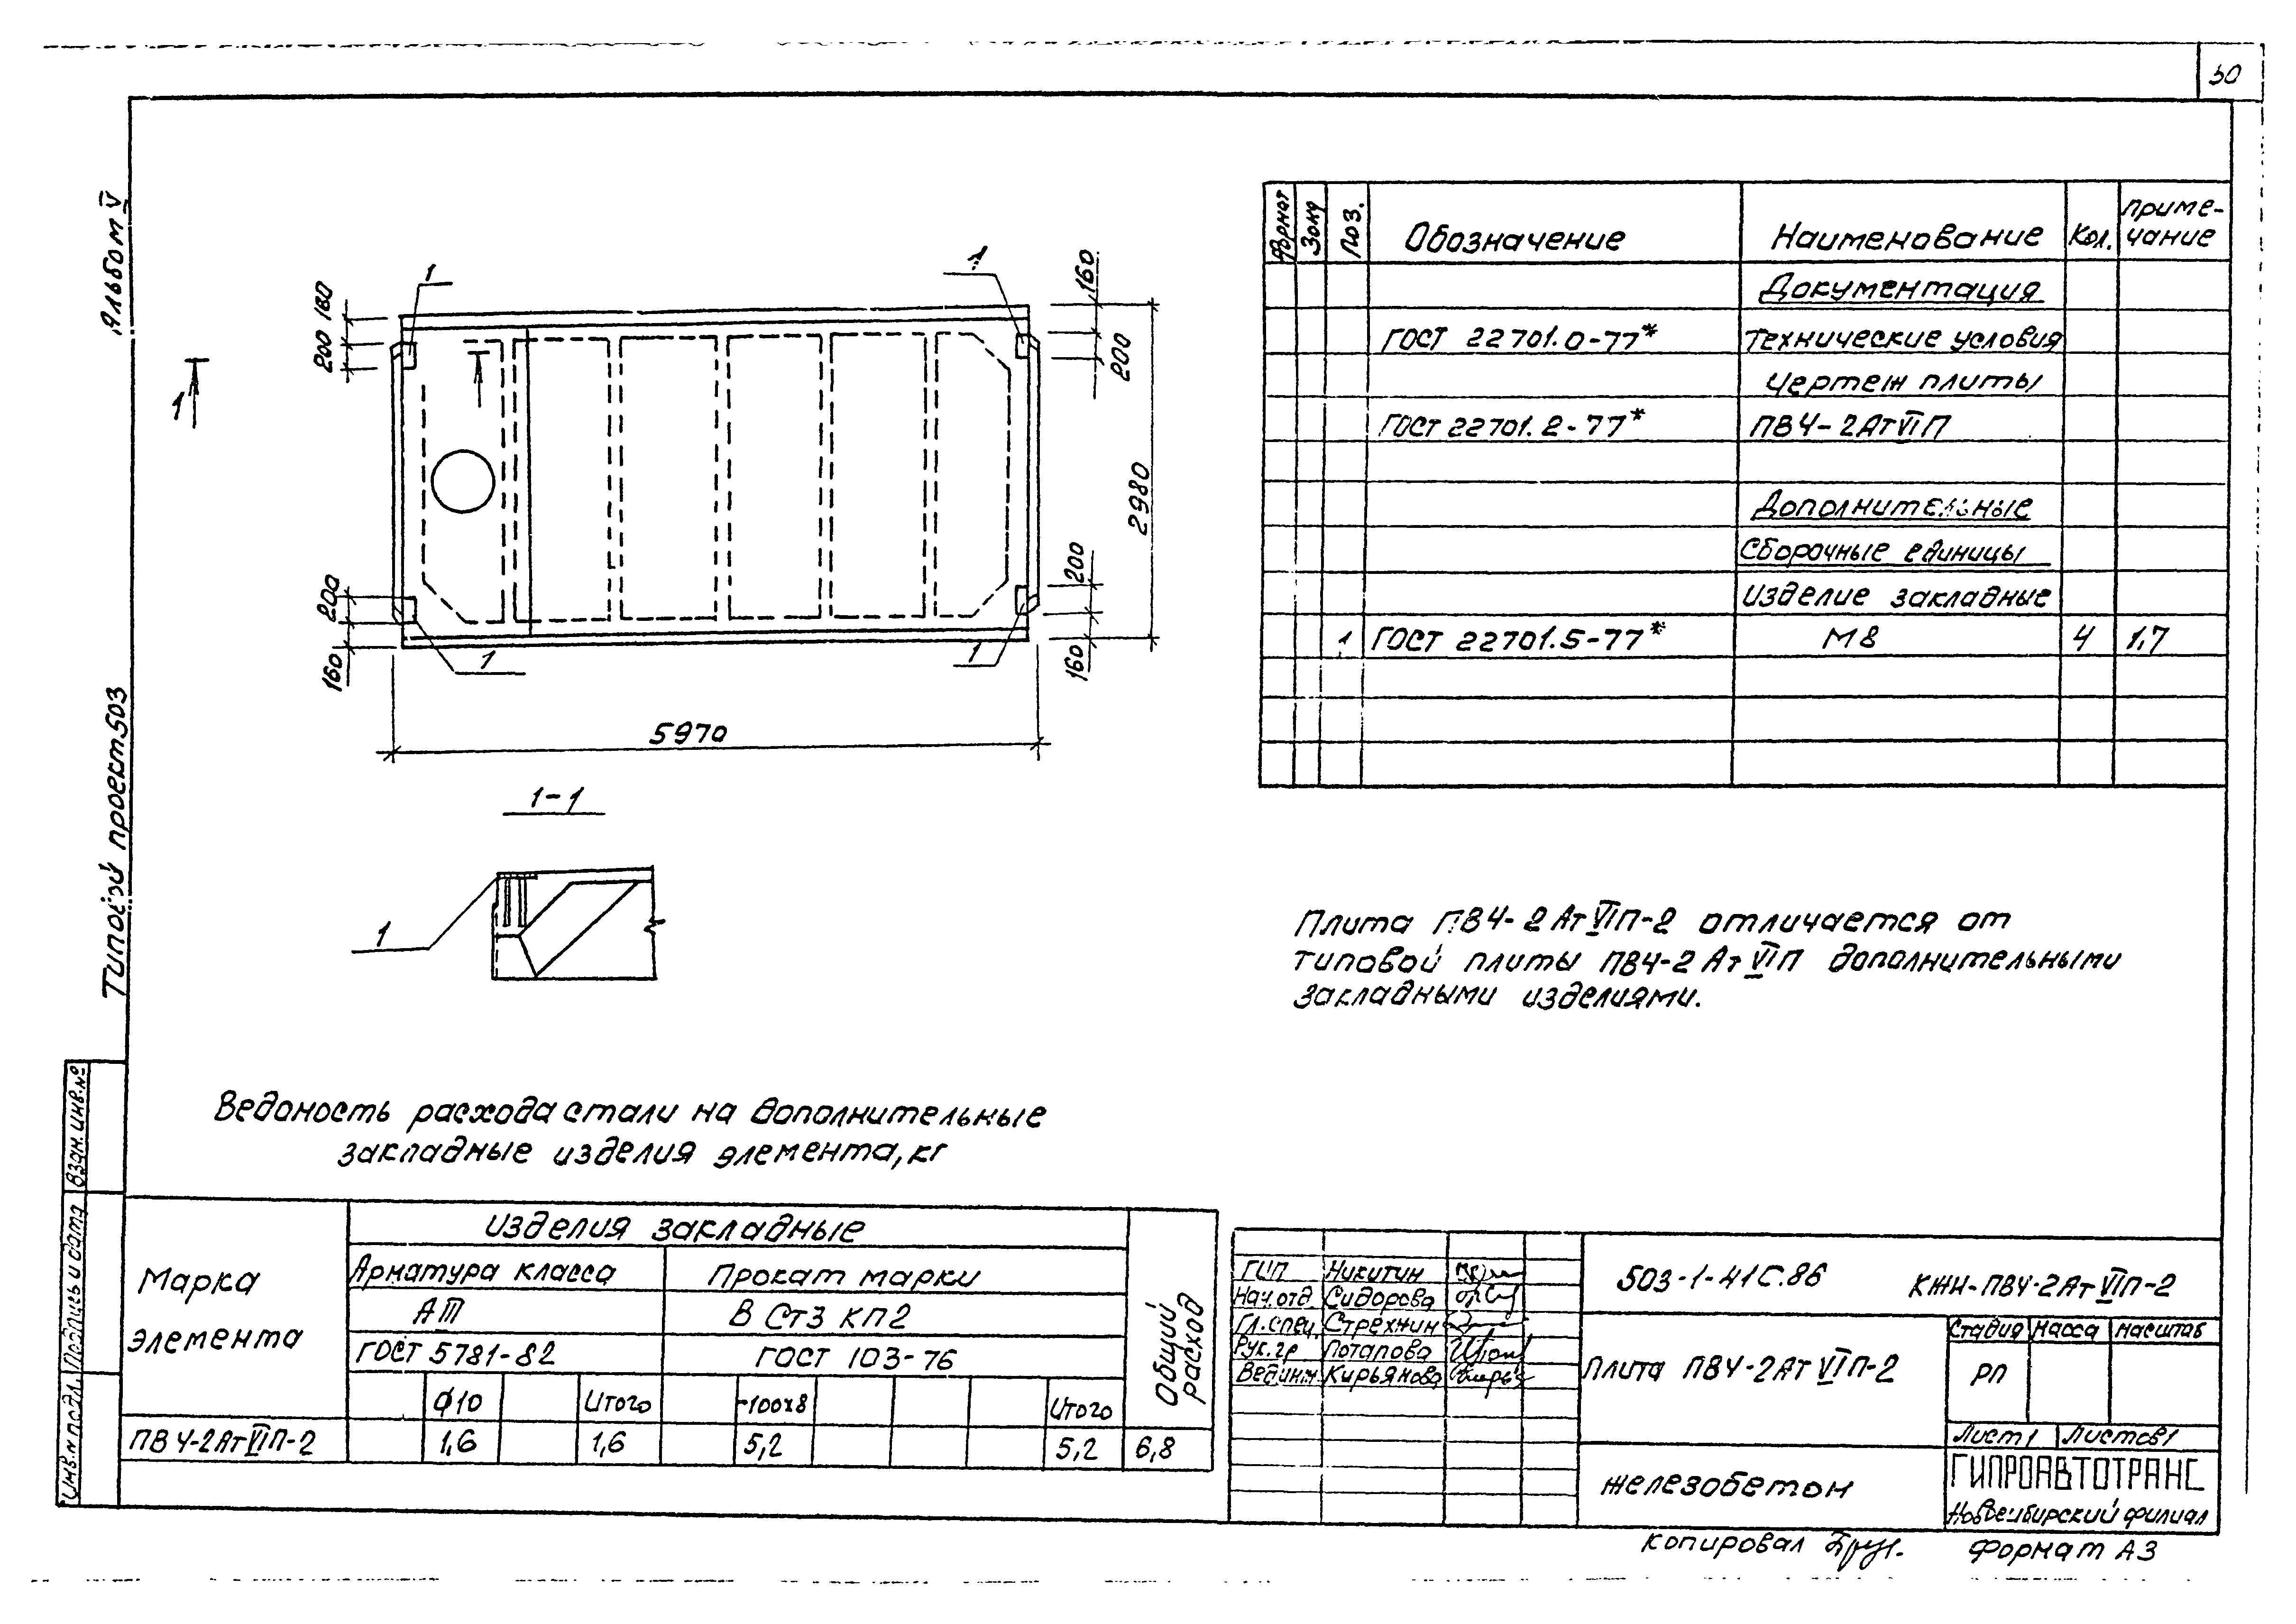 50
Альбом V
Типовой проект 503
Взан. инв. №
Подпись и дата
Инв. № подл.
1
1
160
200
180
200
1
2980
200
160
200
160
1
1
5970
1-1
1
Формат
Зона
Поз.
Обозначение
Наименование
Кол.
Приме-
чание
Документация
ГОСТ 22701.0-77* Технические условия
Чертеж плиты
ГОСТ 22701.2-77* ПВ4-2АтVIП
Дополнительные
Сборочные единицы
Изделие закладные
1 ГОСТ 22701.5-77* М8 4 1,7
Плита ПВ4-2АтVIП-2 отличается от
типовой плиты ПВ4-2АтVIП дополнительными
закладными изделиями.
Ведомость расхода стали на дополнительные
закладные изделия элемента, кг
Марка
элемента
Изделия закладные
Арматура класса Прокат марки
АIII В Ст3 КП2
ГОСТ 5781-82 ГОСТ 103-76
Общий
расход
Ø10 Итого -100х8 Итого
ПВ4-2АтVIП-2 1,6 1,6 5,2 5,2 6,8
ГИП Никитин
Нач.отд. Сидорова
Гл.спец. Стрехнин
Рук.гр Потапова
Вед.инж. Кирьянова
503-1-41С.86 КЖИ-ПВ4-2АтVIП-2
Плита ПВ4-2АтVIП-2
Стадия Масса Масштаб
РП
Лист 1 Листов 1
железобетон
ГИПРОАВТОТРАНС
Новосибирский филиал
Копировал
Формат А3